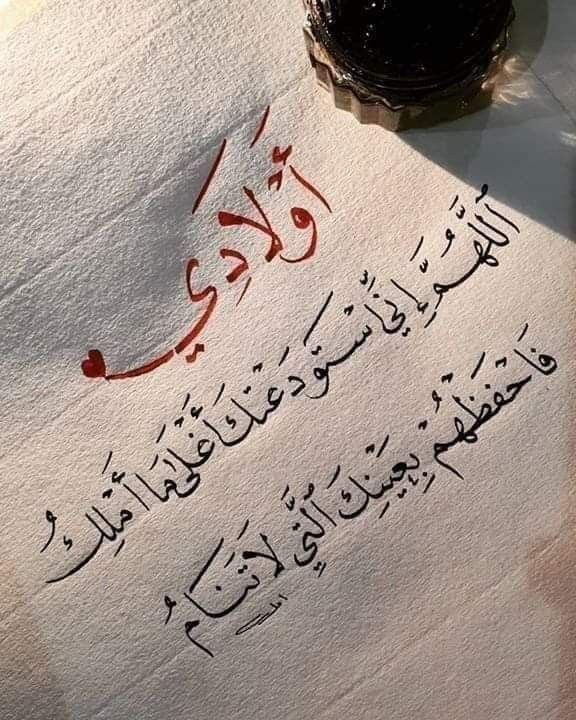 أَوْلَادِي
اَللَّهُمَّ إِنِّي اسْتَوْدَعْتُكَ أَغْلَىٰ مَا أَمْلِكُ
فَاحْفَظْهُمْ بِعَيْنِكَ الَّتِي لَا تَنَامُ